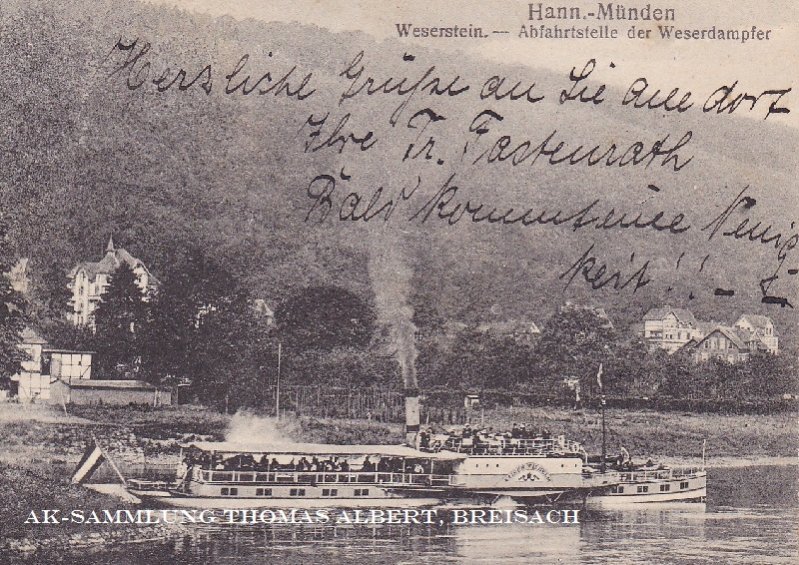 Hann.-Münden
Weserstein. — Abfahrtstelle der Weserdampfer
Herzliche Grüße an Sie alle dort
Ihre Fr. Fastenrath
Bald kommt eine Neuig-
keit!!
AK-SAMMLUNG THOMAS ALBERT, BREISACH